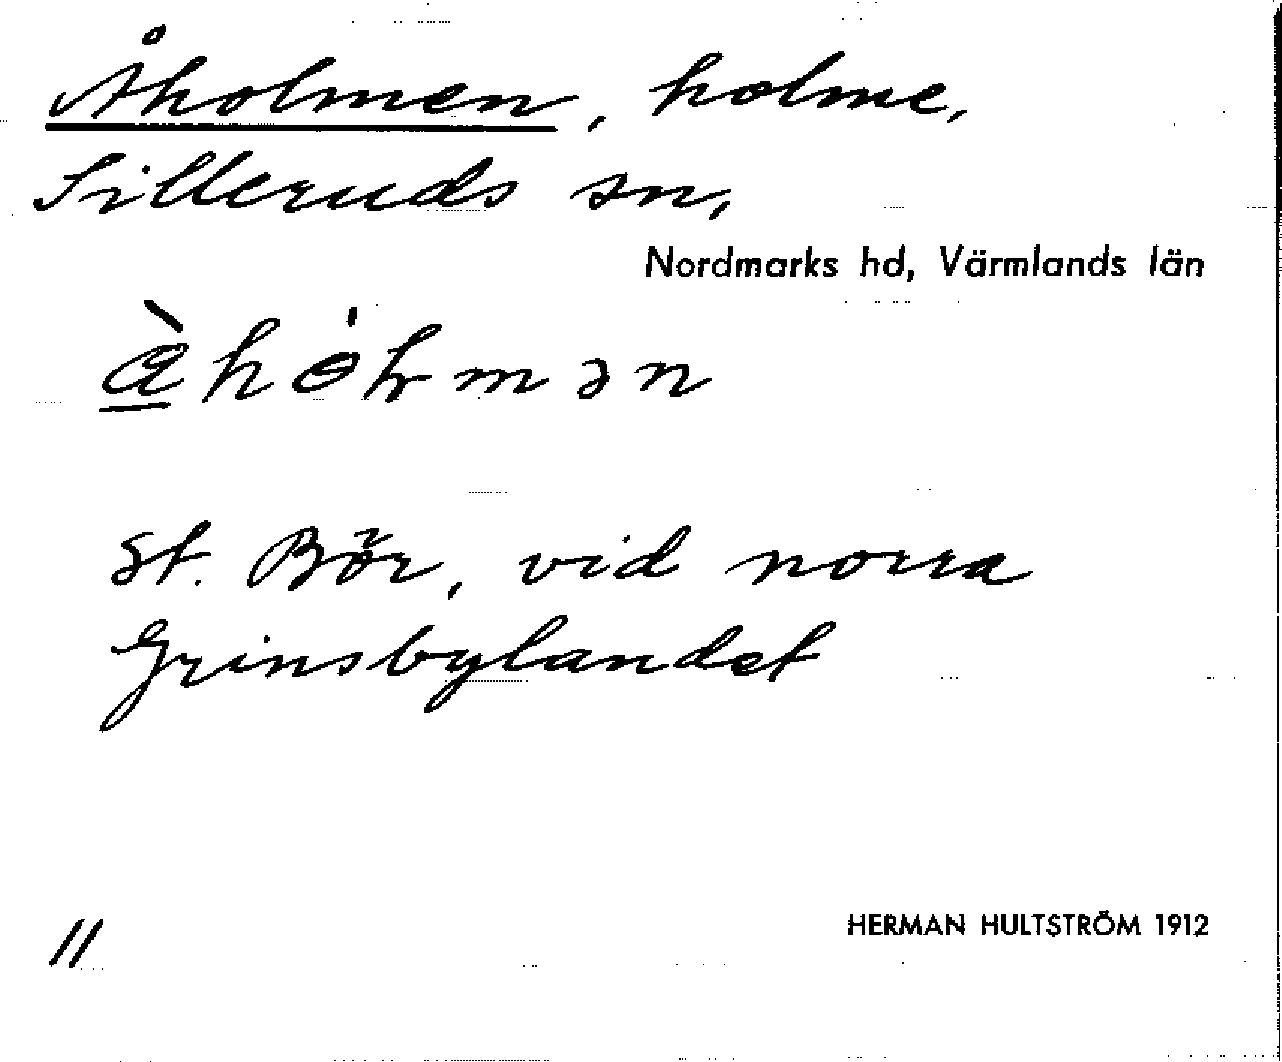 Åholmen, holme,
Silleruds sn,
Nordmarks hd, Värmlands län
St. Bör, vid norra
Grinsbylandet
HERMAN HULTSTRÖM 1912
11